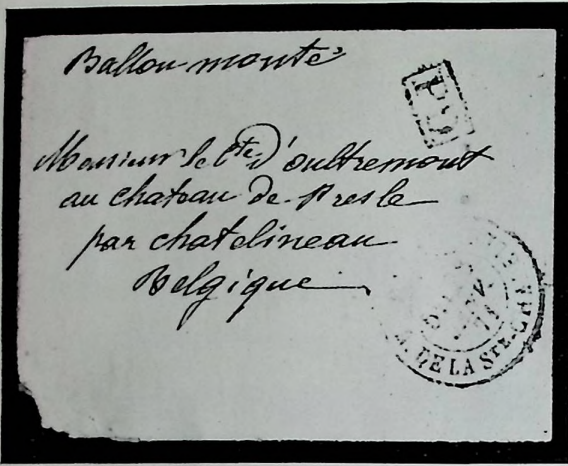 Ballon monté
PD
Monsieur le Cte D'oultremont
au chateau de Presle
par chatelineau
Belgique
DE LA STE CH